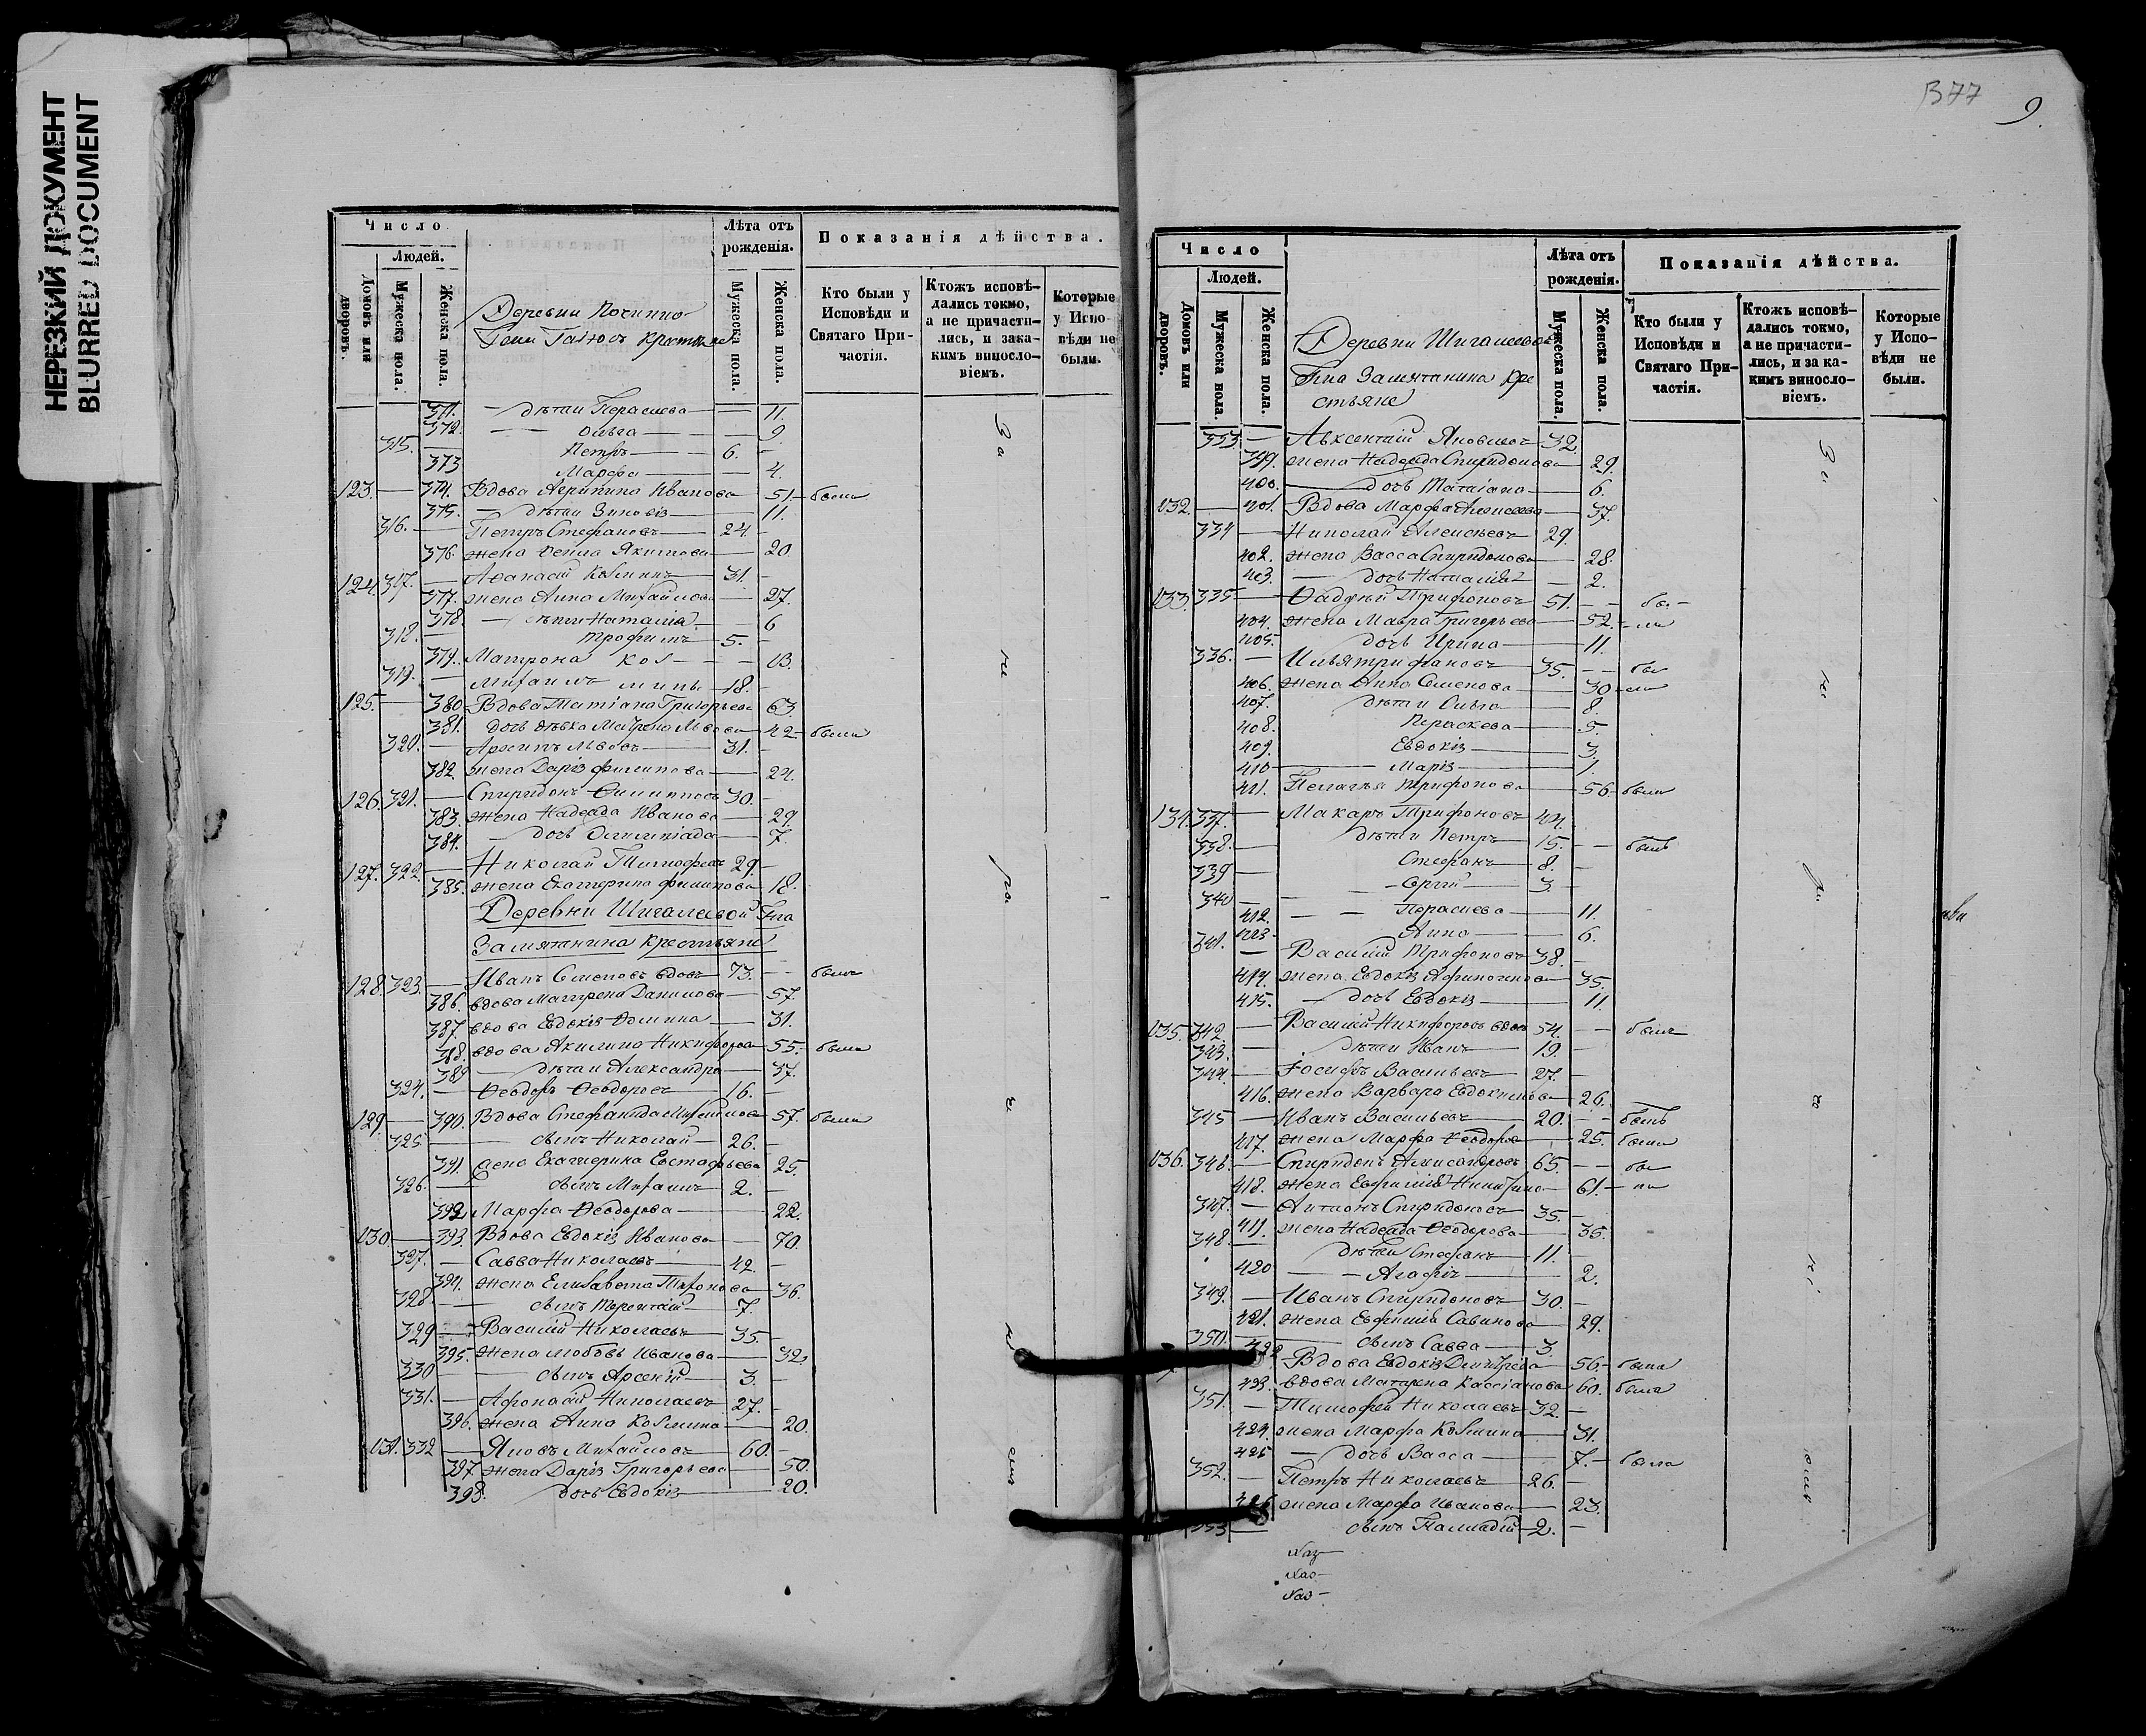 НЕРЕЗКИЙ ДОКУМЕНТ
BLURRED DOCUMENT
Число
Людей.
Домовъ или дворовъ.
Мужеска пола.
Женска пола.
Деревни Починно-
Лѣта отъ рожденія.
Мужеска пола.
Женска пола.
Показанія дѣйства.
Кто были у Исповѣди и Святаго При-частія.
Ктожъ исповѣ-дались токмо, а не причасти-лись, и за ка-кимъ винсло-віемъ.
Которые у Испо-вѣди не были.
371. — дѣти Параскева — 11.
372. — Ольга — 9
315. — Петръ — 6.
373 Марфа — 4.
123. — 374. Вдова Агрипина Иванова — 51 — была
375. — дѣти Зиновія — 11.
316. — Петръ Стефановъ — 24.
376. жена Ѳекла Якимова — 20
124. 317. — Аѳанасій Козминъ — 31.
377. жена Анна Михайлова — 27.
378. — дѣти Наталія — 6
318. — Трофимъ — 5.
379. Матрона Коз — 13.
319. — Михаилъ 18.
125. — 380 Вдова Татіана Григорьева 63.
381. дочь дѣвка Матрена Львова — 42 — была
320. — Архипъ Львовъ — 31.
382. жена Дарія Филипова — 24.
126. 321. — Спиридонъ Филипповъ 30.
383. жена Надежда Иванова — 29.
384. — дочь Олимпіада — 7.
127. 322. — Николай Тимофеевъ 29.
385. жена Екатерина Филипова 18.
Деревни Шигалевой Гна
Замятанина крестьяне
128. 323. — Иванъ Семеновъ вдовъ — 73. — былъ
386. вдова Матрена Данилова — 57.
387. вдова Евдокія Фомина — 31.
388. вдова Акилина Никифорова — 55. — была
389 — дѣти Александра — 37.
324. — Ѳеодоръ Ѳеодоровъ — 16.
129. — 390. Вдова Стефанида Михайлова 57. была
325 — сынъ Николай — 26.
391. жена Екатерина Евстафьева — 25.
326. — сынъ Михаилъ — 2.
392. Марфа Ѳеодорова — 22.
130. — 393. Вдова Евдокія Иванова — 70.
327. — Савва Николаевъ — 42.
394. жена Елисавета Тихонова — 36.
328. — сынъ Терентій — 7.
329 — Василій Николаевъ — 35.
395. жена Любовь Иванова — 32.
330 — сынъ Арсеній — 3.
331. — Афонасій Николаевъ — 27.
396. жена Анна Козмина — 20.
131. 332 — Яковъ Михайловъ — 60.
397. жена Дарія Григорьева — 50.
398. дочь Евдокія — 20.
В77
9.
Число
Людей.
Домовъ или дворовъ.
Мужеска пола.
Женска пола.
Деревни Шигалевой
Гна Замятанина кре
стьяне
Лѣта отъ рожденія.
Мужеска пола.
Женска пола.
Показанія дѣйства.
Кто были у Исповѣди и Святаго При-частія.
Ктожъ исповѣ-дались токмо, а не причасти-лись, и за ка-кимъ винсло-віемъ.
Которые у Испо-вѣди не были.
333. — Авксентій Яковлевъ — 32.
399. жена Надежда Спиридонова — 29.
400. — дочь Татіана — 6.
132. — 401. Вдова Марфа Алексѣева — 57.
334 — Николай Алексѣевъ 29.
402. жена Васса Спиридонова — 28.
403. — дочь Наталія — 2.
133. 335 — Фаддѣй Трифоновъ 51. — бы-
404. жена Мавра Григорьева — 52 — ли
405. дочь Ирина — 11.
336. — Илья Трифоновъ — 35. — бы
406. жена Анна Семенова — 30 — ли
407. дѣти Ольга — 8.
408. Параскева — 5.
409. Евдокія — 3.
410 — Марія — 1.
411. Пелагея Трифонова — 56 — была
134. 337. — Макаръ Трифоновъ 44.
338. — дѣти Петръ — 15. — былъ
339 — Стефанъ — 8.
340 — Сергій — 3.
412. — Параскева — 11.
413. Анна — 6.
341. — Василій Трифоновъ — 38.
414. жена Евдокія Афиногенова — 35.
415. — дочь Евдокія — 11.
135. 342. — Василій Никифоровъ вдовъ 54. — былъ
343. — дѣти Иванъ — 19.
344. — Іосифъ Васильевъ — 27.
416. жена Варвара Евдокимова — 26.
345 — Иванъ Васильевъ — 20. — былъ
417. жена Марфа Ѳеодорова — 25. была
136. 346. — Спиридонъ Александровъ 65. — бы
418. жена Евфимія Никитина — 61. — ли
347. — Антонъ Спиридоновъ — 35.
411. жена Надежда Ѳеодорова — 35.
348. — дѣти Стефанъ — 11.
420 — Агафія — 2.
349. — Иванъ Спиридоновъ — 30.
421. жена Евфимія Савинова — 29.
350. — сынъ Савва — 3.
422 Вдова Евдокія Дмитріева — 56 — была
423. вдова Матрена Кассіанова 60. — была
351. — Тимофей Николаевъ — 32.
424. жена Марфа Козмина — 31.
425 — дочь Васса — 7. — была
352. — Петръ Николаевъ — 26.
426 жена Марфа Иванова — 23.
353 — сынъ Палладій — 2.